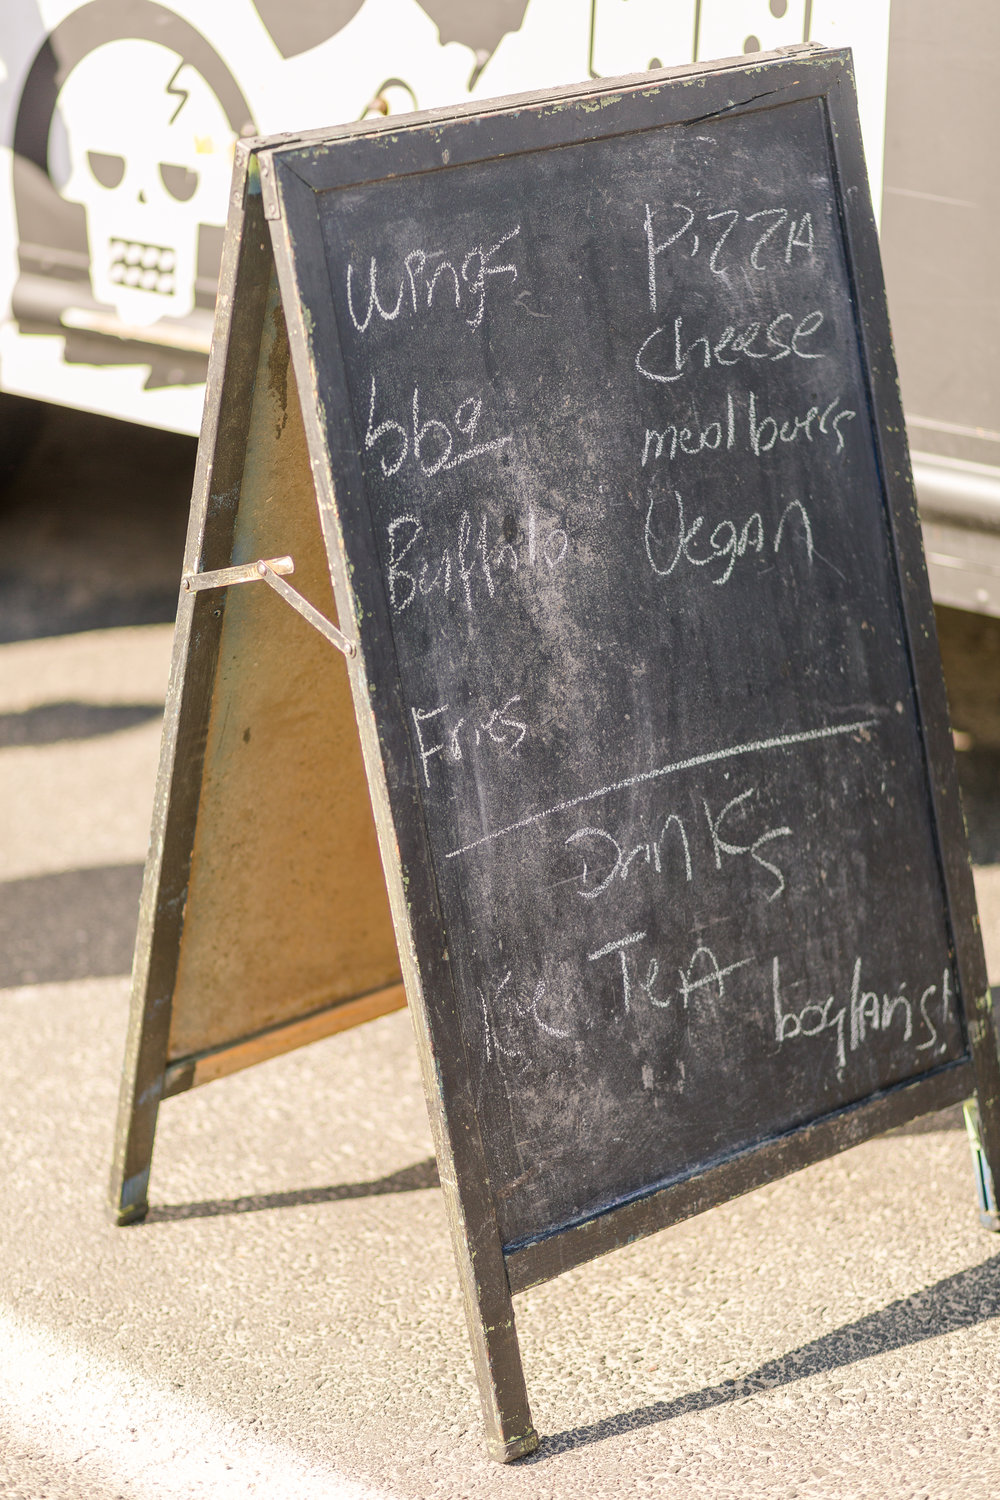 wings
bbq
Buffalo
Fries
PIZZA
cheese
Vegan
Drinks
ICe TeA